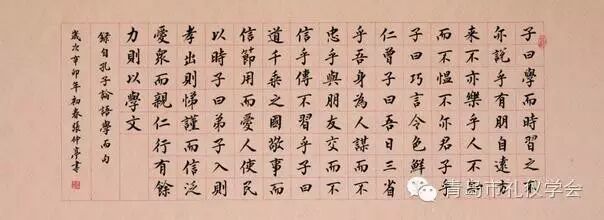 子曰學而時習之不
亦說乎有朋自遠方
來不亦樂乎人不知
而不慍不亦君子乎
子曰巧言令色鮮矣
仁曾子曰吾日三省
乎吾身為人謀而不
忠乎與朋友交而不
信乎傳不習乎子曰
道千乘之國敬事而
信節用而愛人使民
以時子曰弟子入則
孝出則悌謹而信泛
愛眾而親仁行有餘
力則以學文
錄自孔子論語學而句
歲次辛卯年初春張仲亭書
青岛市礼仪学会